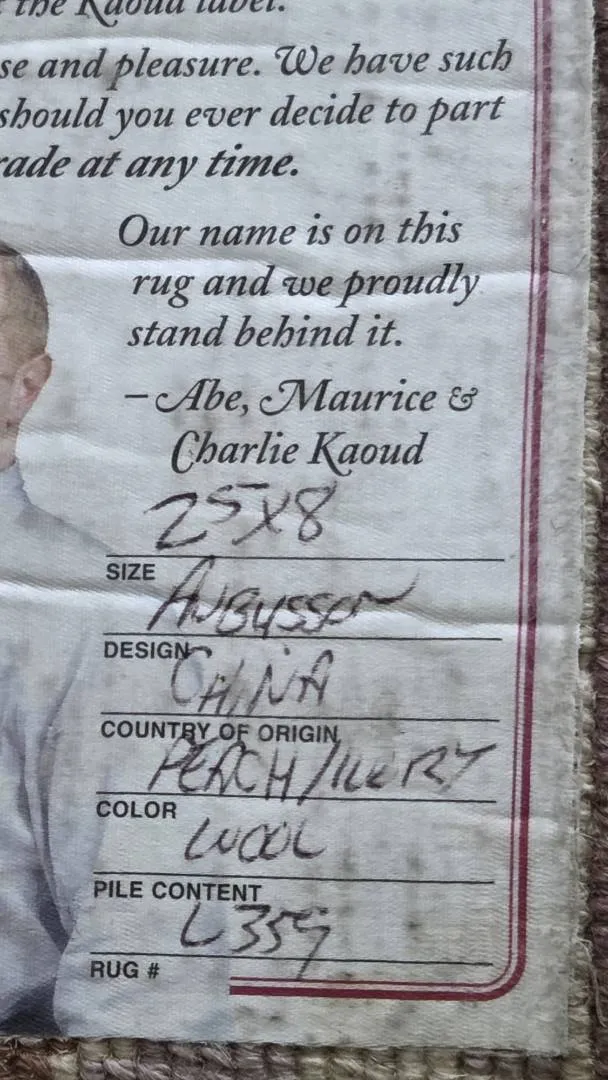 the Kaoud label.
se and pleasure. We have such
should you ever decide to part
rade at any time.
Our name is on this
rug and we proudly
stand behind it.
– Abe, Maurice &
Charlie Kaoud
25x8
SIZE
AUBUSSON
DESIGN
CHINA
COUNTRY OF ORIGIN
PEACH/IVORY
COLOR
WOOL
PILE CONTENT
L359
RUG #